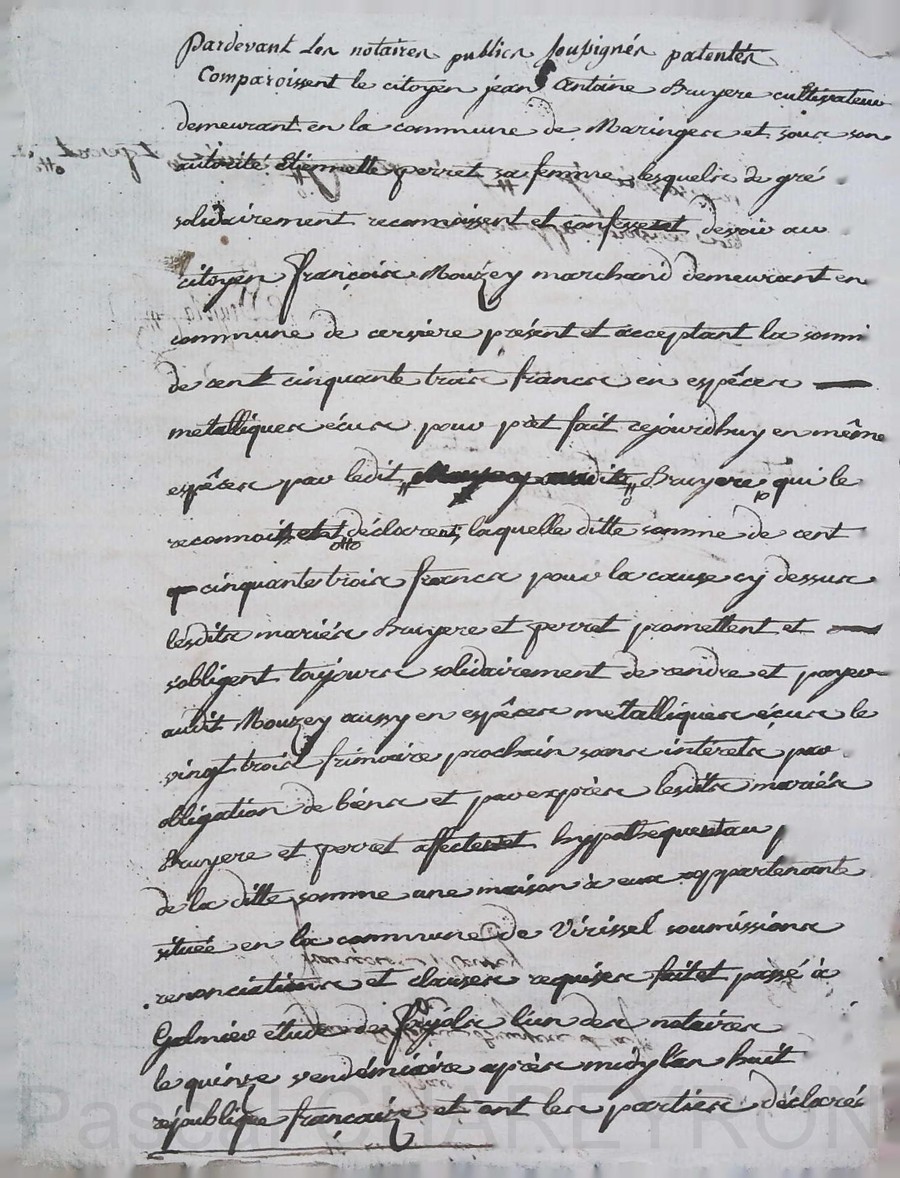 Pardevant Les notaires publics soussignés patentés
Comparoissent le citoyen jean Antoine Bruyere cultivateur
demeurant en la commune de Maringes et sous son
autorité Etiennette perret sa femme, lesquels de gré
solidairement reconnoissent et confessent devoir au
citoyen françois Mouzey marchand demeurant en
commune de cerviere présent et acceptant la somme
de cent cinquante trois francs en espêces
metalliques écus pour prêt fait cejourdhuy en même
espêces par ledit Bruyere qui le
reconnoit déclare laquelle ditte somme de cent
cinquante trois francs pour la cause cy dessus
lesdits mariés Bruyere et perret promettent et
s'obligent toujours solidairement de rendre et payer
audit Mouzey aussy en espêces metalliques écus le
vingt trois frimaire prochain sans interets par
obligation de biens et par exprès lesdits mariés
Bruyere et perret affectent et hypothequent au p
de la ditte somme une maison à eux appartenante
située en la commune de Virissel soumissions
renonciations et clauses requises fait et passé à
Galmier étude de l'un des notaires
le quinze vendémiaire après midy l'an huit
république française et ont les parties déclaré
Pascal CHAREYRON